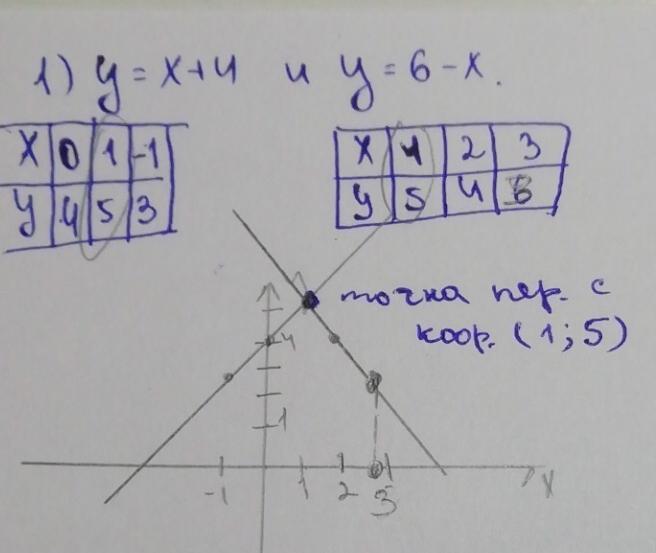 1) y = x+4 и y = 6 - x.
x 0 1 -1
y 4 5 3
x 1 2 3
y 5 4 3
точка пер. с
коор. (1;5)
4
1
-1 1 2 3 x